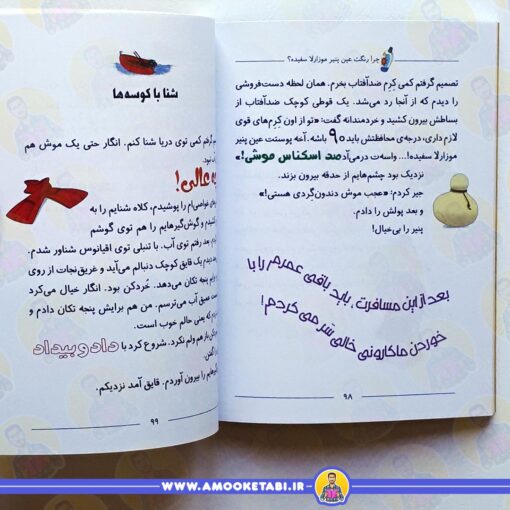 چرا رنگت عین پنیر موزارلا سفیده؟
تصمیم گرفتم کمی کِرِم ضدآفتاب بخرم. همان لحظه دست‌فروشی
را دیدم که از آنجا رد می‌شد. یک قوطی کوچک ضدآفتاب از
بساطش بیرون کشید و خردمندانه گفت: «تو از اون کِرِم‌های قوی
لازم داری، درجه‌ی محافظتش باید ۹۰ باشه. آخه پوستت عین پنیر
موزارلا سفیده!... واسه‌ت درمی‌آد صد اسکناس موشی!»
نزدیک بود چشم‌هایم از حدقه بیرون بزند.
جیر کردم: «عجب موش دندون‌گِردی هستی!»
و بعد پولش را دادم.
پنیر را بی‌خیال!
بعد از این مسافرت، باید باقی عمرم را با
خوردن ماکارونی خالی سَر می‌کردم!
۹۸
شنا با کوسه‌ها
گرفتم کمی توی دریا شنا کنم. انگار حتی یک موش هم
نبود.
عالی!
غواصی‌ام را پوشیدم، کلاه شنایم را به
و گوش‌گیرهایم را هم توی گوشم
رفتم توی آب. با تنبلی توی اقیانوس شناور شدم.
یک قایق کوچک دنبالم می‌آید و غریق‌نجات از روی
پنجه تکان می‌دهد. خُردکن بود. انگار خیال می‌کرد
عمق آب می‌ترسم. من هم برایش پنجه تکان دادم و
که یعنی حالم خوب است.
باز هم ولم نکرد. شروع کرد با داد و بیداد
گفتن.
را بیرون آوردم. قایق آمد نزدیکم.
۹۹
WWW.AMOOKETABI.IR